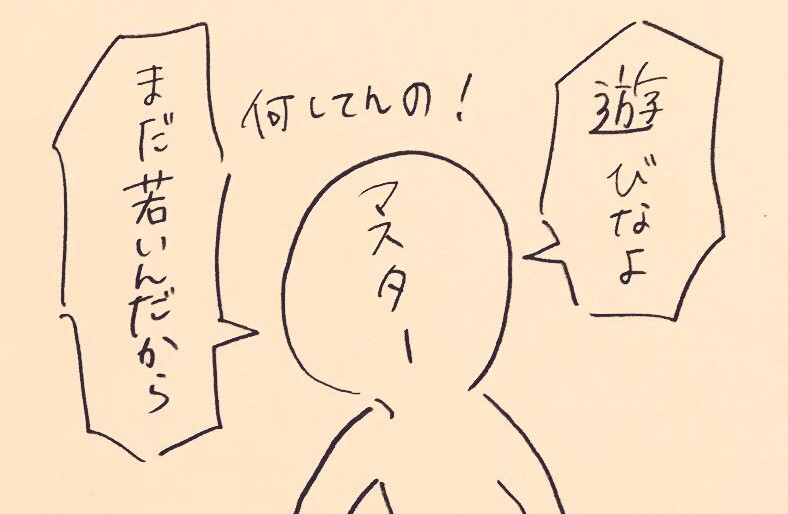 何してんの!
遊びなよ
まだ若いんだから
マスター